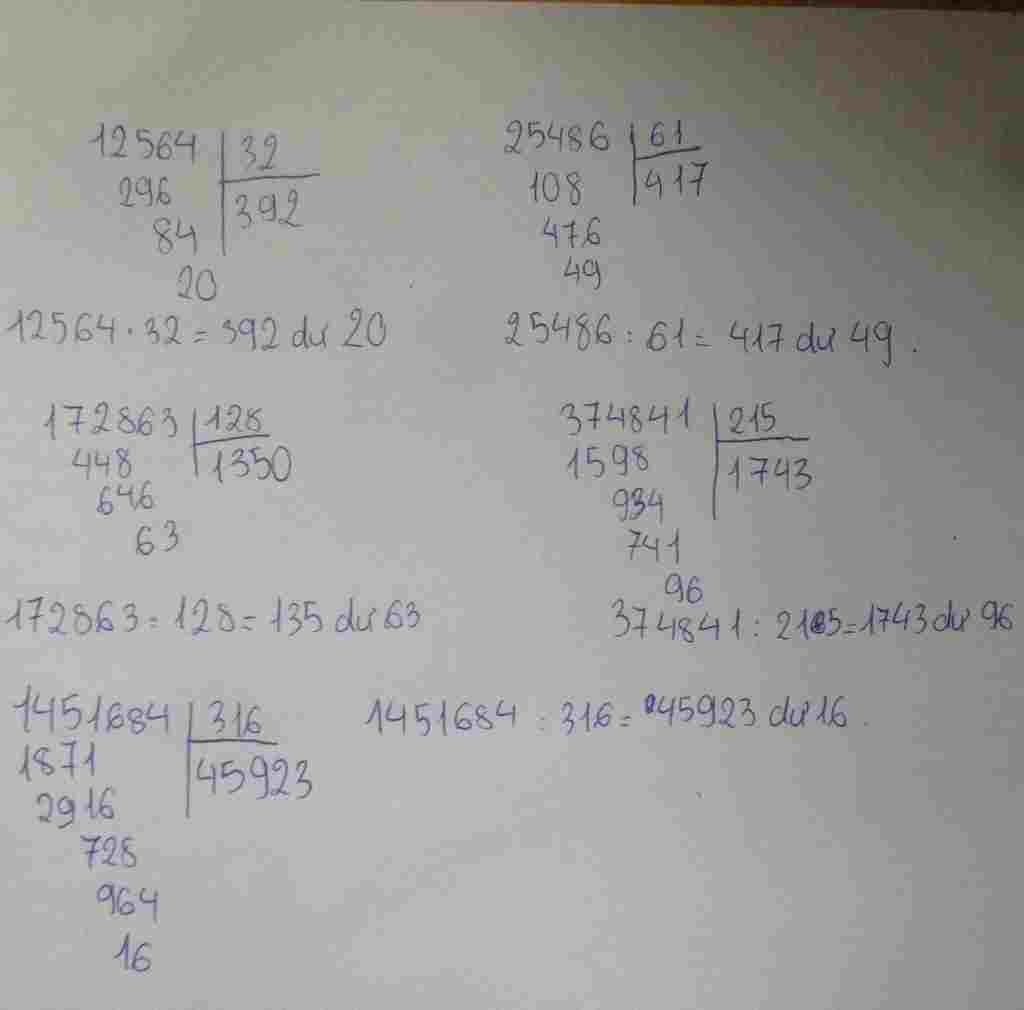 12564 | 32
296 | 392
84
20
12564 · 32 = 392 dư 20
25486 | 61
108 | 417
476
49
25486 : 61 = 417 dư 49.
172863 | 128
448 | 1350
646
63
172863 : 128 = 135 dư 63
374841 | 215
1598 | 1743
934
741
96
374841 : 215 = 1743 dư 96
1451684 | 316
1871 | 45923
2916
728
964
16
1451684 : 316 = 45923 dư 16.